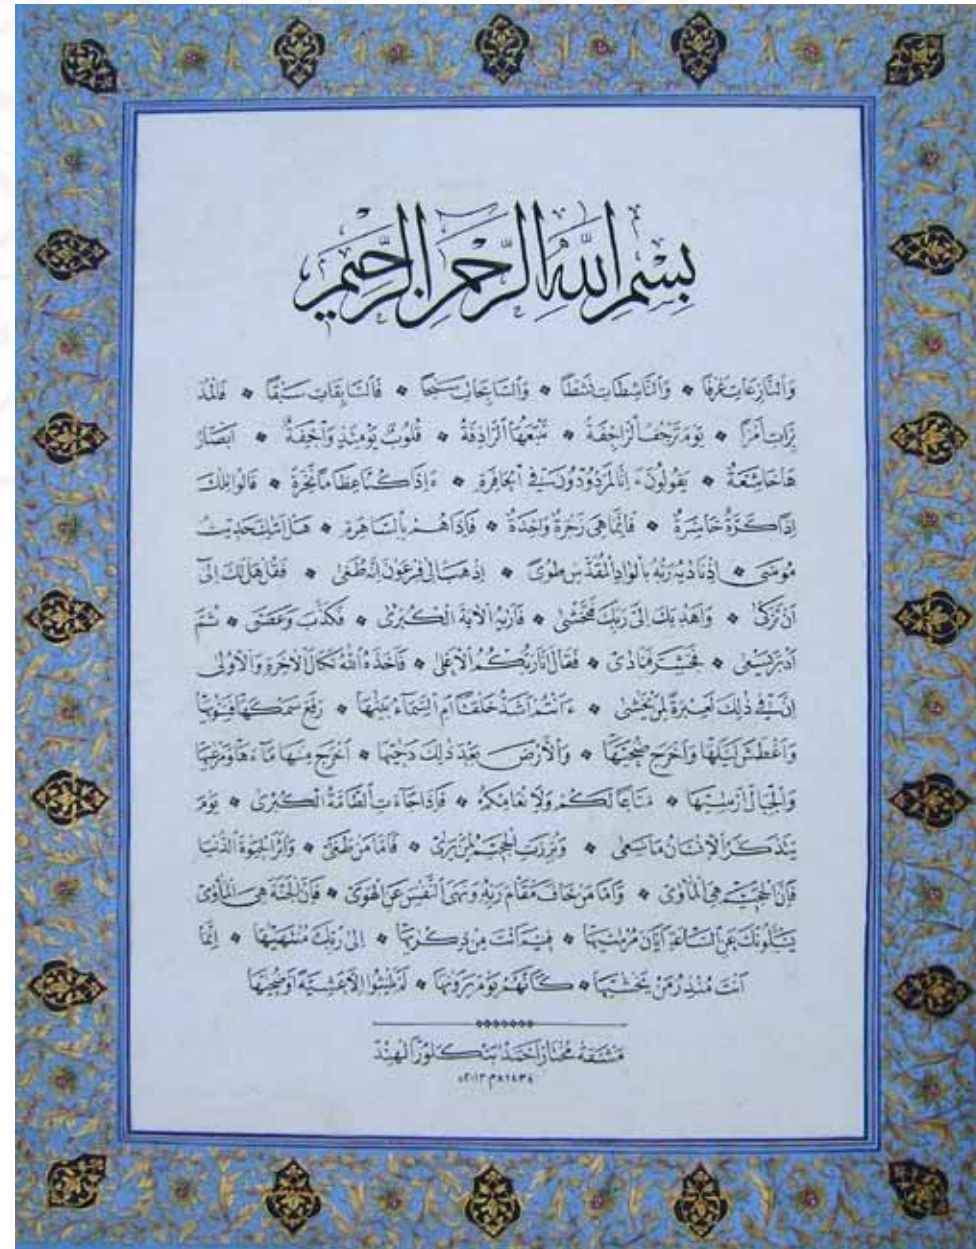 بِسْمِ اللَّهِ الرَّحْمَنِ الرَّحِيمِ
وَالنَّازِعَاتِ غَرْقًا وَالنَّاشِطَاتِ نَشْطًا وَالسَّابِحَاتِ سَبْحًا فَالسَّابِقَاتِ سَبْقًا فَالْمُدَ
بِّرَاتِ أَمْرًا يَوْمَ تَرْجُفُ الرَّاجِفَةُ تَتْبَعُهَا الرَّادِفَةُ قُلُوبٌ يَوْمَئِذٍ وَاجِفَةٌ أَبْصَارُ
هَا خَاشِعَةٌ يَقُولُونَ ءَاِنَّا لَمَرْدُودُونَ فِي الْحَافِرَةِ ءَاِذَا كُنَّا عِظَامًا نَّخِرَةً قَالُوا تِلْكَ
إِذًا كَرَّةٌ خَاسِرَةٌ فَإِنَّمَا هِيَ زَجْرَةٌ وَاحِدَةٌ فَإِذَا هُمْ بِالسَّاهِرَةِ هَلْ أَتٰىكَ حَدِيثُ
مُوسٰى إِذْ نَادٰيهُ رَبُّهُ بِالْوَادِ الْمُقَدَّسِ طُوًى إِذْهَبْ إِلٰى فِرْعَوْنَ إِنَّهُ طَغٰى فَقُلْ هَلْ لَكَ إِلٰى
أَنْ تَزَكّٰى وَأَهْدِيَكَ إِلٰى رَبِّكَ فَتَخْشٰى فَأَرٰيهُ الْاٰيَةَ الْكُبْرٰى فَكَذَّبَ وَعَصٰى ثُمَّ
أَدْبَرَ يَسْعٰى فَحَشَرَ فَنَادٰى فَقَالَ أَنَا رَبُّكُمُ الْأَعْلٰى فَأَخَذَهُ اللّٰهُ نَكَالَ الْاٰخِرَةِ وَالْأُولٰى
إِنَّ فِي ذٰلِكَ لَعِبْرَةً لِمَنْ يَخْشٰى ءَاَنْتُمْ أَشَدُّ خَلْقًا أَمِ السَّمَاءُ بَنٰيهَا رَفَعَ سَمْكَهَا فَسَوّٰيهَا
وَأَغْطَشَ لَيْلَهَا وَأَخْرَجَ ضُحٰيهَا وَالْأَرْضَ بَعْدَ ذٰلِكَ دَحٰيهَا أَخْرَجَ مِنْهَا مَاءَهَا وَمَرْعٰيهَا
وَالْجِبَالَ أَرْسٰيهَا مَتَاعًا لَكُمْ وَلِأَنْعَامِكُمْ فَإِذَا جَاءَتِ الطَّامَّةُ الْكُبْرٰى يَوْمَ
يَتَذَكَّرُ الْإِنْسَانُ مَا سَعٰى وَبُرِّزَتِ الْجَحِيمُ لِمَنْ يَرٰى فَأَمَّا مَنْ طَغٰى وَاٰثَرَ الْحَيٰوةَ الدُّنْيَا
فَإِنَّ الْجَحِيمَ هِيَ الْمَأْوٰى وَأَمَّا مَنْ خَافَ مَقَامَ رَبِّهِ وَنَهَى النَّفْسَ عَنِ الْهَوٰى فَإِنَّ الْجَنَّةَ هِيَ الْمَأْوٰى
يَسْـَٔلُونَكَ عَنِ السَّاعَةِ أَيَّانَ مُرْسٰيهَا فِيمَ أَنْتَ مِنْ ذِكْرٰيهَا إِلٰى رَبِّكَ مُنْتَهٰيهَا إِنَّمَا
أَنْتَ مُنْذِرُ مَنْ يَخْشٰيهَا كَأَنَّهُمْ يَوْمَ يَرَوْنَهَا لَمْ يَلْبَثُوا إِلَّا عَشِيَّةً أَوْ ضُحٰيهَا
مَشَقَهُ مُخْتَار أَحْمَد بَنْكَلُور الْهِنْد